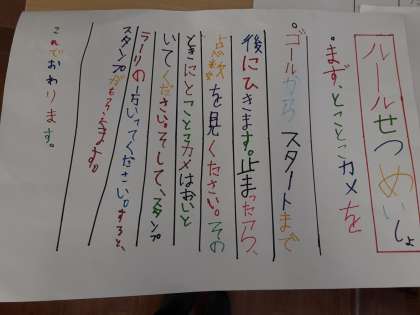 ルールせつめいしょ
・まず、とことこカメを
・ゴールから スタートまで
後にひきます。止まったら、
点数を見ください。その
ときにとことこカメはおいと
いてください。そして、スタンプ
ラーリの方いってください。すると、
スタンプがもらえます。
これでおわります。